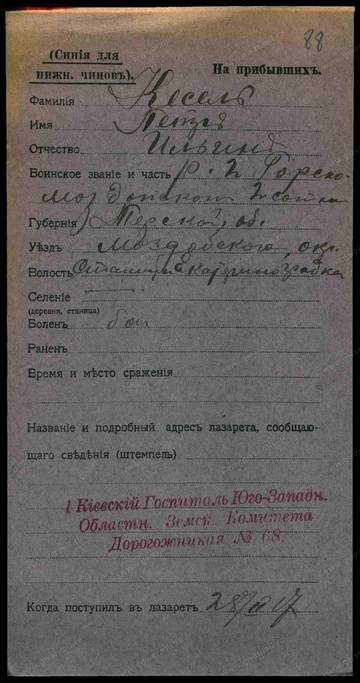 88
(Синія для нижн. чиновъ).
На прибывшихъ.
Фамилія Кесель
Имя Петръ
Отчество Ильинъ
Воинское званіе и часть р. 2 Горско-
моздокской 2 сотни
Губернія Терской об.
Уѣздъ Моздокского, окр.
Волость Станица Екатериноградская
Селеніе —
(деревня, станица)
Боленъ бол
Раненъ
Время и мѣсто сраженія
Названіе и подробный адресъ лазарета, сообщаю-
щаго свѣдѣнія (штемпель)
1 Кіевскій Госпиталь Юго-Западн.
Областн. Земск Комитета
Дорогожицкая № 68.
Когда поступилъ въ лазаретъ 28/II 17